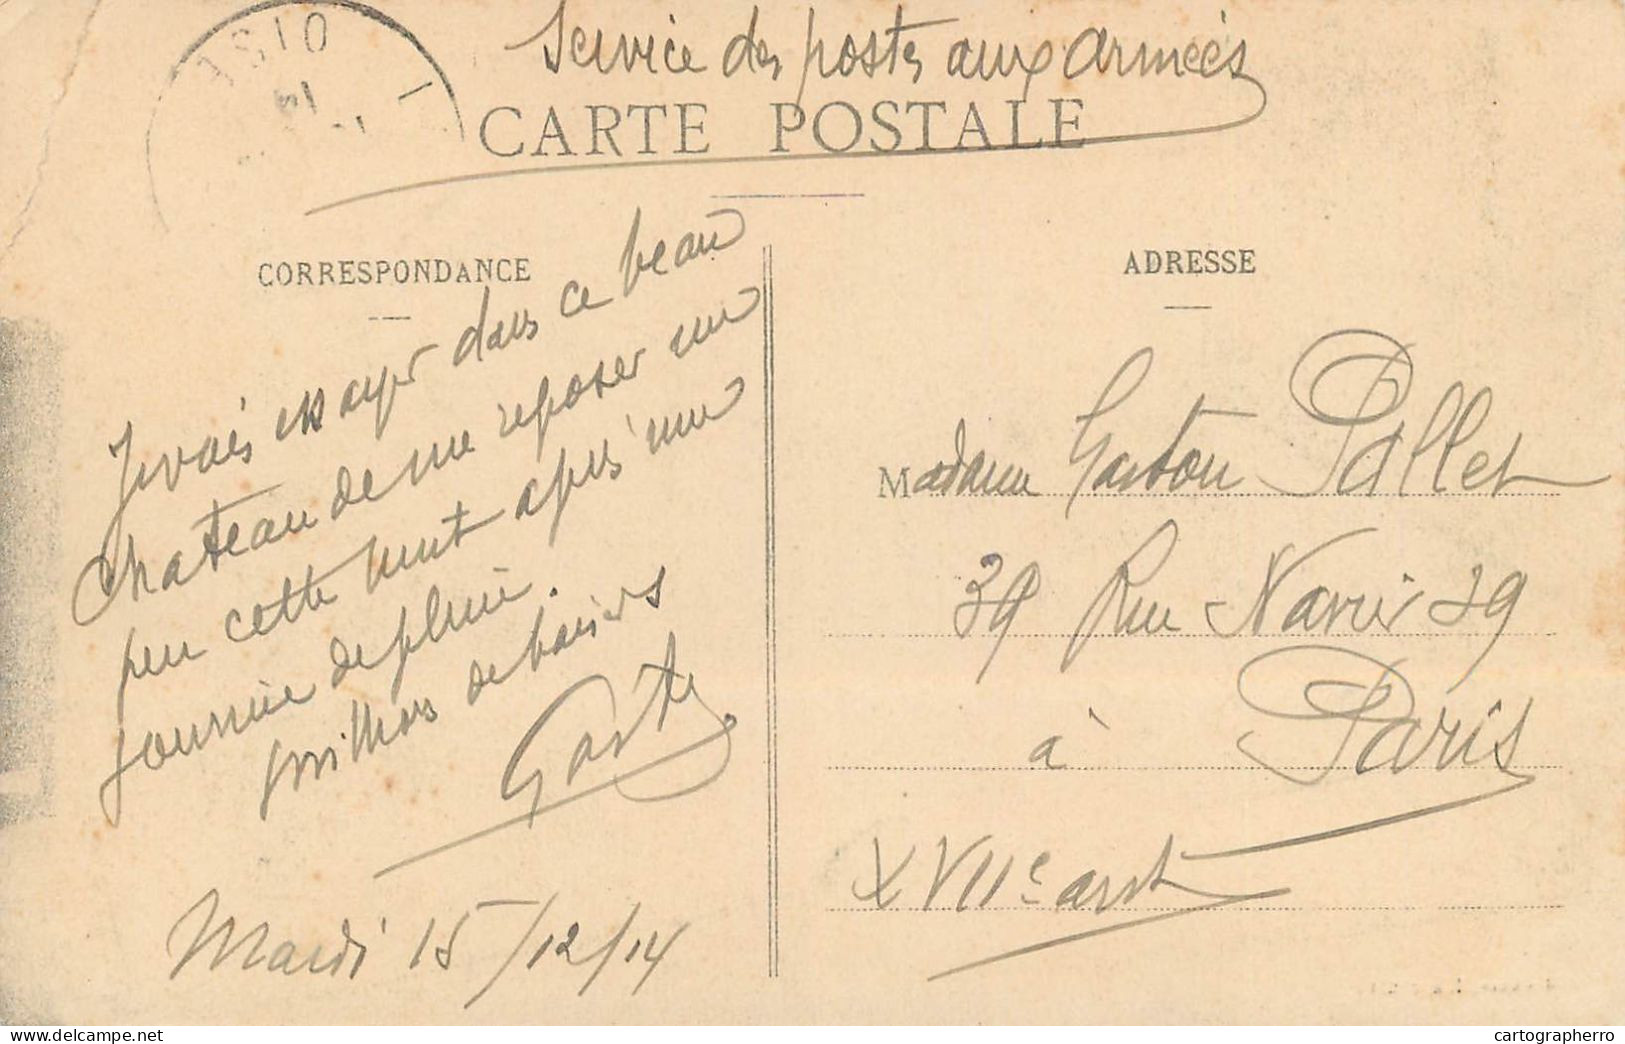 Service des postes aux armées
CARTE POSTALE
OISE
CORRESPONDANCE
Je vais essayer dans ce beau
chateau de me reposer un
peu cette nuit après une
journée de pluie.
milliers de baisers
Gaston
Mardi 15/12/14
ADRESSE
Madame Gaston Pallet
39 Rue Navier 39
à Paris
XVIIe arrt
cartographerro